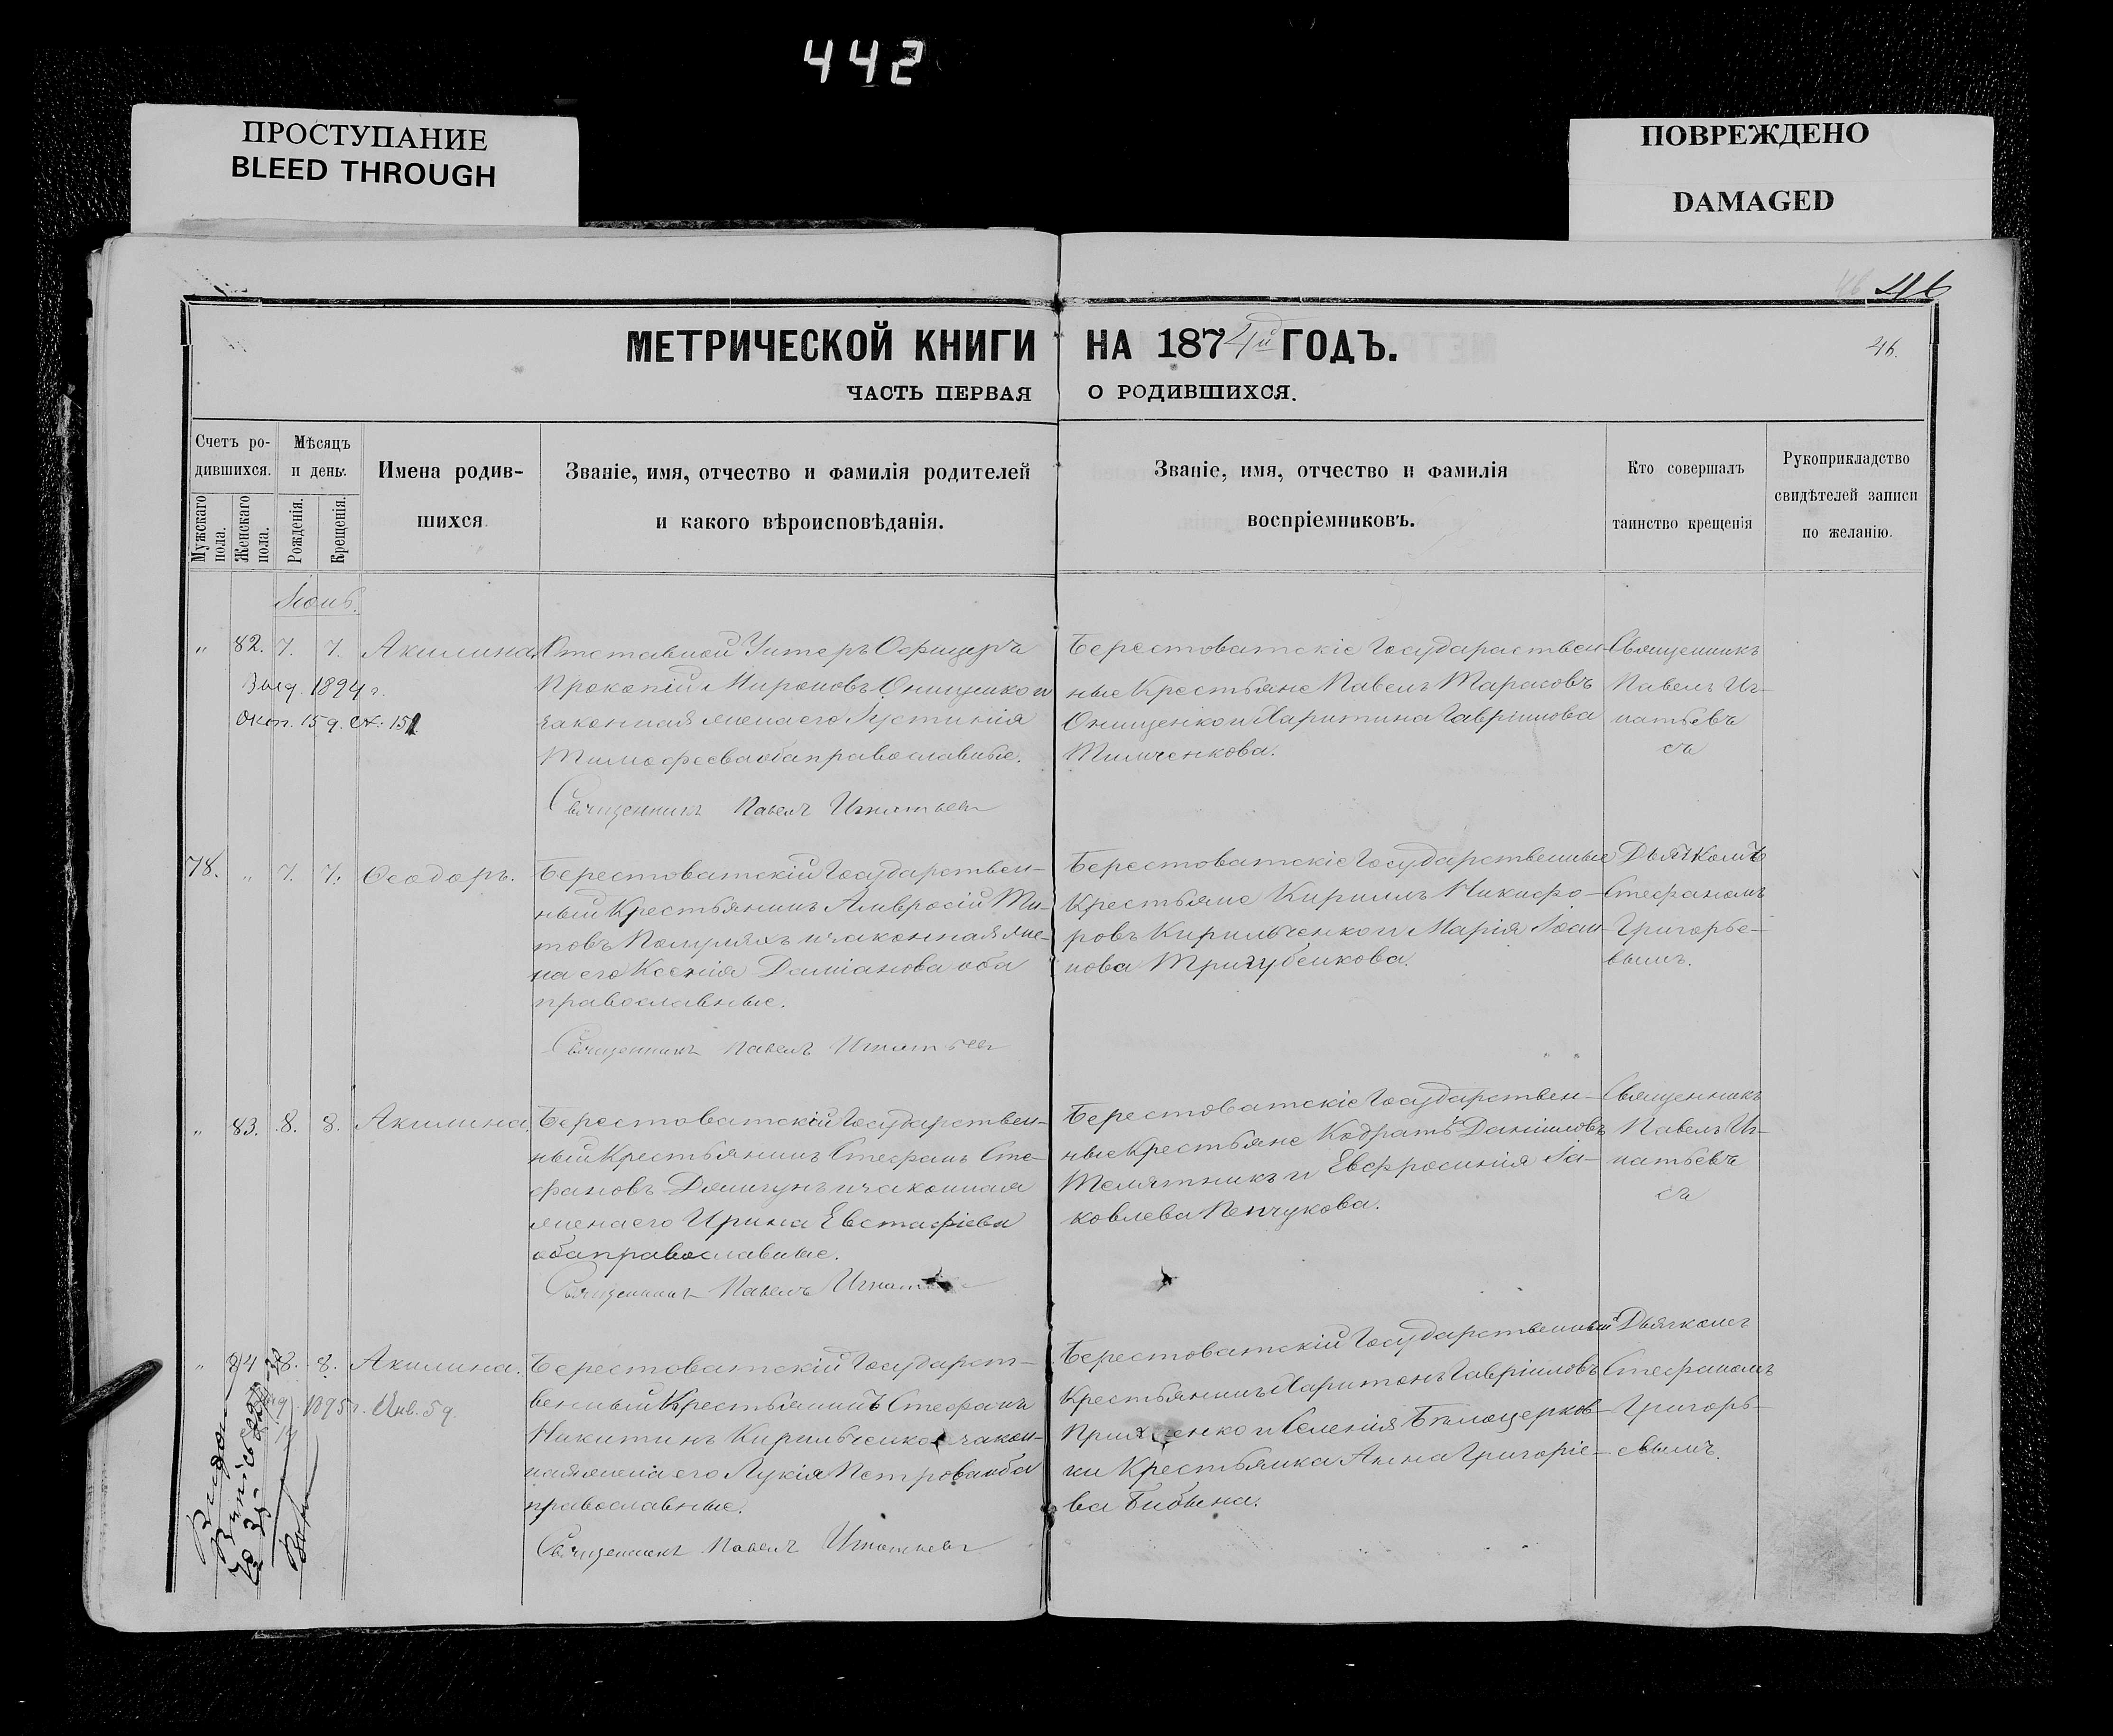 442
ПРОСТУПАНИЕ
BLEED THROUGH
ПОВРЕЖДЕНО
DAMAGED
46
МЕТРИЧЕСКОЙ КНИГИ НА 1874й ГОДЪ.
46.
ЧАСТЬ ПЕРВАЯ О РОДИВШИХСЯ.
Счетъ ро-
дившихся.
Мужскаго пола.
Женскаго пола.
Мѣсяцъ
и день.
Рожденія.
Крещенія.
Имена родив-
шихся
Званіе, имя, отчество и фамилія родителей
и какого вѣроисповѣданія.
Званіе, имя, отчество и фамилія
воспріемниковъ.
Кто совершалъ
таинство крещенія
Рукоприкладство
свидѣтелей записи
по желанію.
Іюнь.
" 82. 7. 7. Акилина.
Выд. 1894 г.
Окт. 15 д.
Отставной Унтеръ Офицеръ
Прокопій Мироновъ Онищенко и
законная жена его Іустинія
Тимофеева оба православные.
Священникъ Павелъ Игнатьевъ
Берестоватскіе Государствен-
ные Крестьяне Павелъ Тарасовъ
Онищенко и Харитина Гавріилова
Тимченкова.
Священникъ
Павелъ Иг-
натьевъ
78. " 7. 7. Ѳеодоръ.
Берестоватскій Государствен-
ный Крестьянинъ Амвросій Ти-
товъ и законная же-
на его Ксенія Даміанова оба
православные.
Священникъ Павелъ Игнатьевъ
Берестоватскіе Государственные
Крестьяне Кириллъ Никифо-
ровъ Кирильченко и Марія Іоан-
нова Тригубенкова.
Дьячкомъ
Стефаномъ
Григорье-
вымъ.
" 83. 8. 8. Акилина.
Берестоватскій Государствен-
ный Крестьянинъ Стефанъ Сте-
фановъ и законная
жена его Ирина Евстафіева
оба православные.
Священникъ Павелъ
Берестоватскіе Государствен-
ные Крестьяне Кодратъ Даніиловъ
Телятникъ и Евфросинія Іа-
ковлева
Священникъ
Павелъ Иг-
натьевъ
" 84 8. 8. Акилина.
1895 г. Янв. 5 д.
Берестоватскій Государст-
венный Крестьянинъ Стефанъ
Никитинъ Кирильченко и закон-
ная жена его Лукія Петрова оба
православные.
Священникъ Павелъ Игнатьевъ
Берестоватскій Государственный
Крестьянинъ Харитонъ Гавріиловъ
и селенія Бѣлоцерков-
ки Крестьянка Анна Григоріе-
ва
Дьячкомъ
Стефаномъ
Григорь-
евымъ.